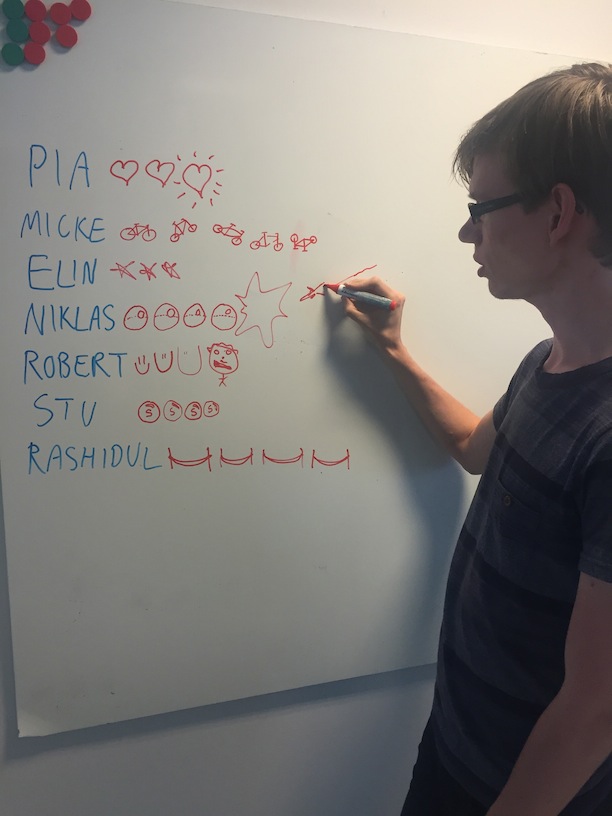 PIA
MICKE
ELIN
NIKLAS
ROBERT
STU S S S S
RASHIDUL